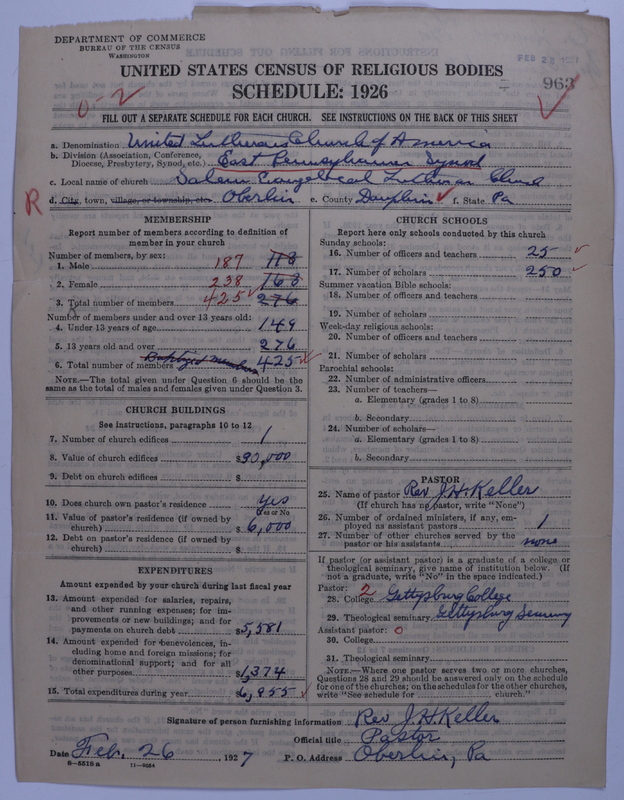 DEPARTMENT OF COMMERCE
BUREAU OF THE CENSUS
WASHINGTON
UNITED STATES CENSUS OF RELIGIOUS BODIES
963
SCHEDULE: 1926
0-2
FILL OUT A SEPARATE SCHEDULE FOR EACH CHURCH. SEE INSTRUCTIONS ON THE BACK OF THIS SHEET
a. Denomination United Lutheran Church of America
b. Division (Association, Conference, Diocese, Presbytery, Synod, etc.) East Pennsylvania Synod
c. Local name of church Salem Evangelical Lutheran Church
R d. City, town, village, or township, etc. Oberlin e. County Dauphin f. State Pa
MEMBERSHIP
Report number of members according to definition of
member in your church
Number of members, by sex:
1. Male 187 118
2. Female 238 168
3. Total number of members 425 276
Number of members under and over 13 years old:
4. Under 13 years of age 149
5. 13 years old and over 276
6. Total number of members Baptized members 425
NOTE.—The total given under Question 6 should be the
same as the total of males and females given under Question 3.
CHURCH BUILDINGS
See instructions, paragraphs 10 to 12
7. Number of church edifices 1
8. Value of church edifices $90,000
9. Debt on church edifices $
10. Does church own pastor's residence yes
Yes or No
11. Value of pastor's residence (if owned by
church) $6,000
12. Debt on pastor's residence (if owned by
church) $
EXPENDITURES
Amount expended by your church during last fiscal year
13. Amount expended for salaries, repairs,
and other running expenses; for im-
provements or new buildings; and for
payments on church debt $5,581
14. Amount expended for benevolences, in-
cluding home and foreign missions; for
denominational support; and for all
other purposes $1,374
15. Total expenditures during year 6,955
CHURCH SCHOOLS
Report here only schools conducted by this church
Sunday schools:
16. Number of officers and teachers 25
17. Number of scholars 250
Summer vacation Bible schools:
18. Number of officers and teachers
19. Number of scholars
Week-day religious schools:
20. Number of officers and teachers
21. Number of scholars
Parochial schools:
22. Number of administrative officers
23. Number of teachers—
a. Elementary (grades 1 to 8)
b. Secondary
24. Number of scholars—
a. Elementary (grades 1 to 8)
b. Secondary
PASTOR
25. Name of pastor Rev J. H. Keller
(If church has no pastor, write "None")
26. Number of ordained ministers, if any, em-
ployed as assistant pastors 1
27. Number of other churches served by the
pastor or his assistants none
If pastor (or assistant pastor) is a graduate of a college or
theological seminary, give name of institution below. (If
not a graduate, write "No" in the space indicated.)
Pastor: 2
28. College Gettysburg College
29. Theological seminary Gettysburg Seminary
Assistant pastor: 0
30. College
31. Theological seminary
NOTE.—Where one pastor serves two or more churches,
Questions 28 and 29 should be answered only on the schedule
for one of the churches; on the schedules for the other churches,
write "See schedule for church."
Signature of person furnishing information Rev J. H. Keller
Official title Pastor
Date Feb. 26, 1927 P. O. Address Oberlin, Pa
8-5518a 11-9054